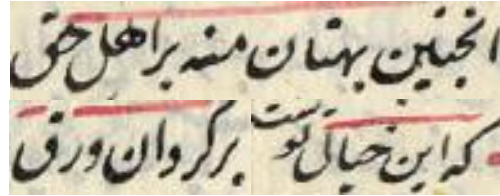 انجنین بهتان منه بر اهل حق
که این خیالی توست بر کردان ورق